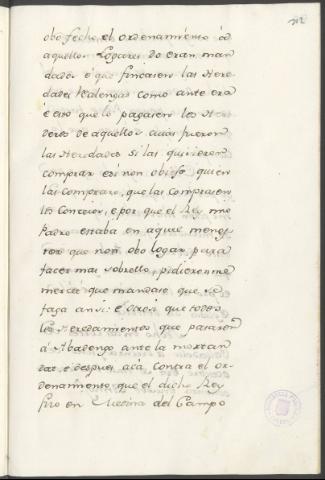 112
obo fecho el ordenamiento á
aquellos Logares do eran man
dados é que fincasen las Here
dades Realengas como ante era
é eso que lo pagasen los He
deros de aquellos cuias fueron
las Heredades si las quisieren
comprar e si non obiese quien
las comprare, que las comprasen
los Concejos, e por que el Rey mio
Padre estaba en aquel menes
ter que non obo logar para
facer mas sobrello, pidieronme
merced que mandase que se
faga ansi: é otrosi que todos
los Heredamientos que pasaron
á Abadengo ante la mortan
dat, e despues acá contra el or-
denamiento que el dicho Rey
fizo en Medina del Campo